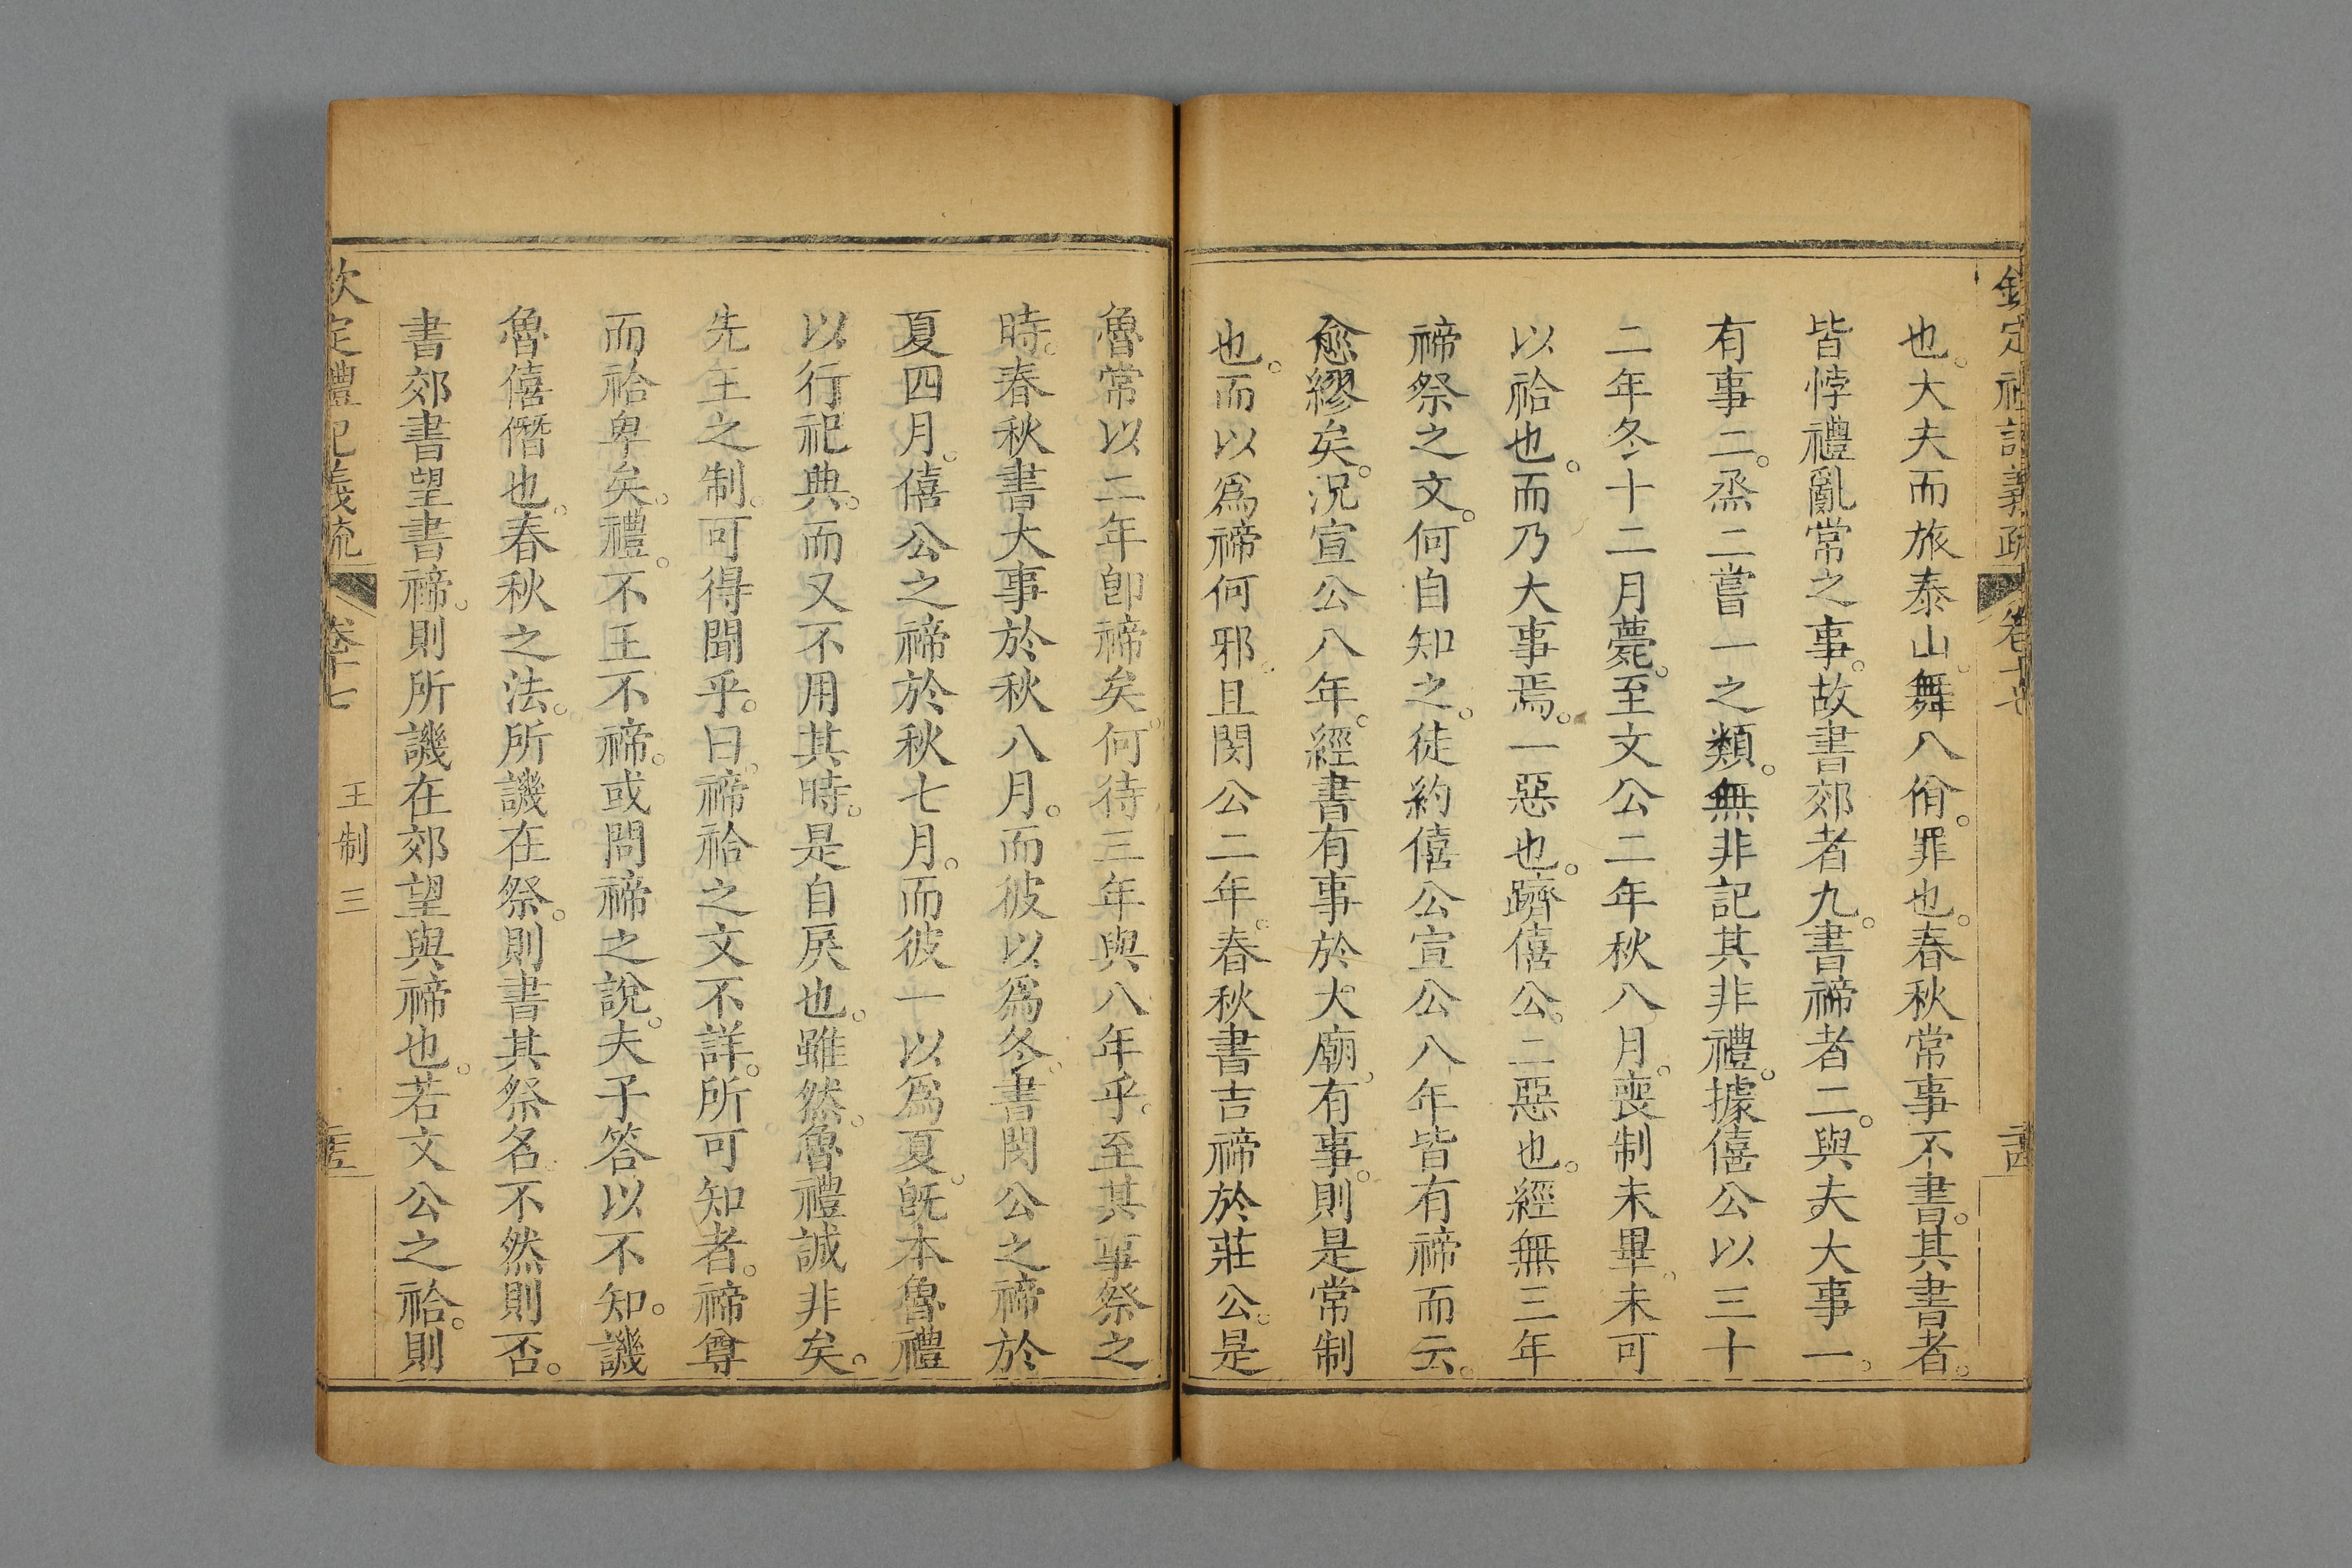 欽定禮記義疏 卷十七 十四
也。大夫而旅泰山。舞八佾。罪也。春秋常事不書。其書者。
皆悖禮亂常之事。故書郊者九。書禘者二。與夫大事一。
有事二。烝二嘗一之類。無非記其非禮。據僖公以三十
二年冬十二月薨。至文公二年秋八月。喪制未畢。未可
以祫也。而乃大事焉。一惡也。躋僖公。二惡也。經無三年
禘祭之文。何自知之。徒約僖公宣公八年皆有禘而云。
愈繆矣。況宣公八年。經書有事於大廟。有事。則是常制
也。而以爲禘何邪。且閔公二年。春秋書吉禘於莊公。是
魯常以二年卽禘矣。何待三年與八年乎。至其事祭之
時。春秋書大事於秋八月。而彼以爲冬。書閔公之禘於
夏四月。僖公之禘於秋七月。而彼一以爲夏。旣本魯禮
以行祀典。而又不用其時。是自戾也。雖然。魯禮誠非矣。
先王之制。可得聞乎。曰。禘祫之文不詳。所可知者。禘尊
而祫卑矣。禮。不王不禘。或問禘之說。夫子答以不知。譏
魯僖僭也。春秋之法。所譏在祭。則書其祭名。不然則否。
書郊書望書禘。則所譏在郊望與禘也。若文公之祫。則
欽定禮記義疏 卷十七 王制三